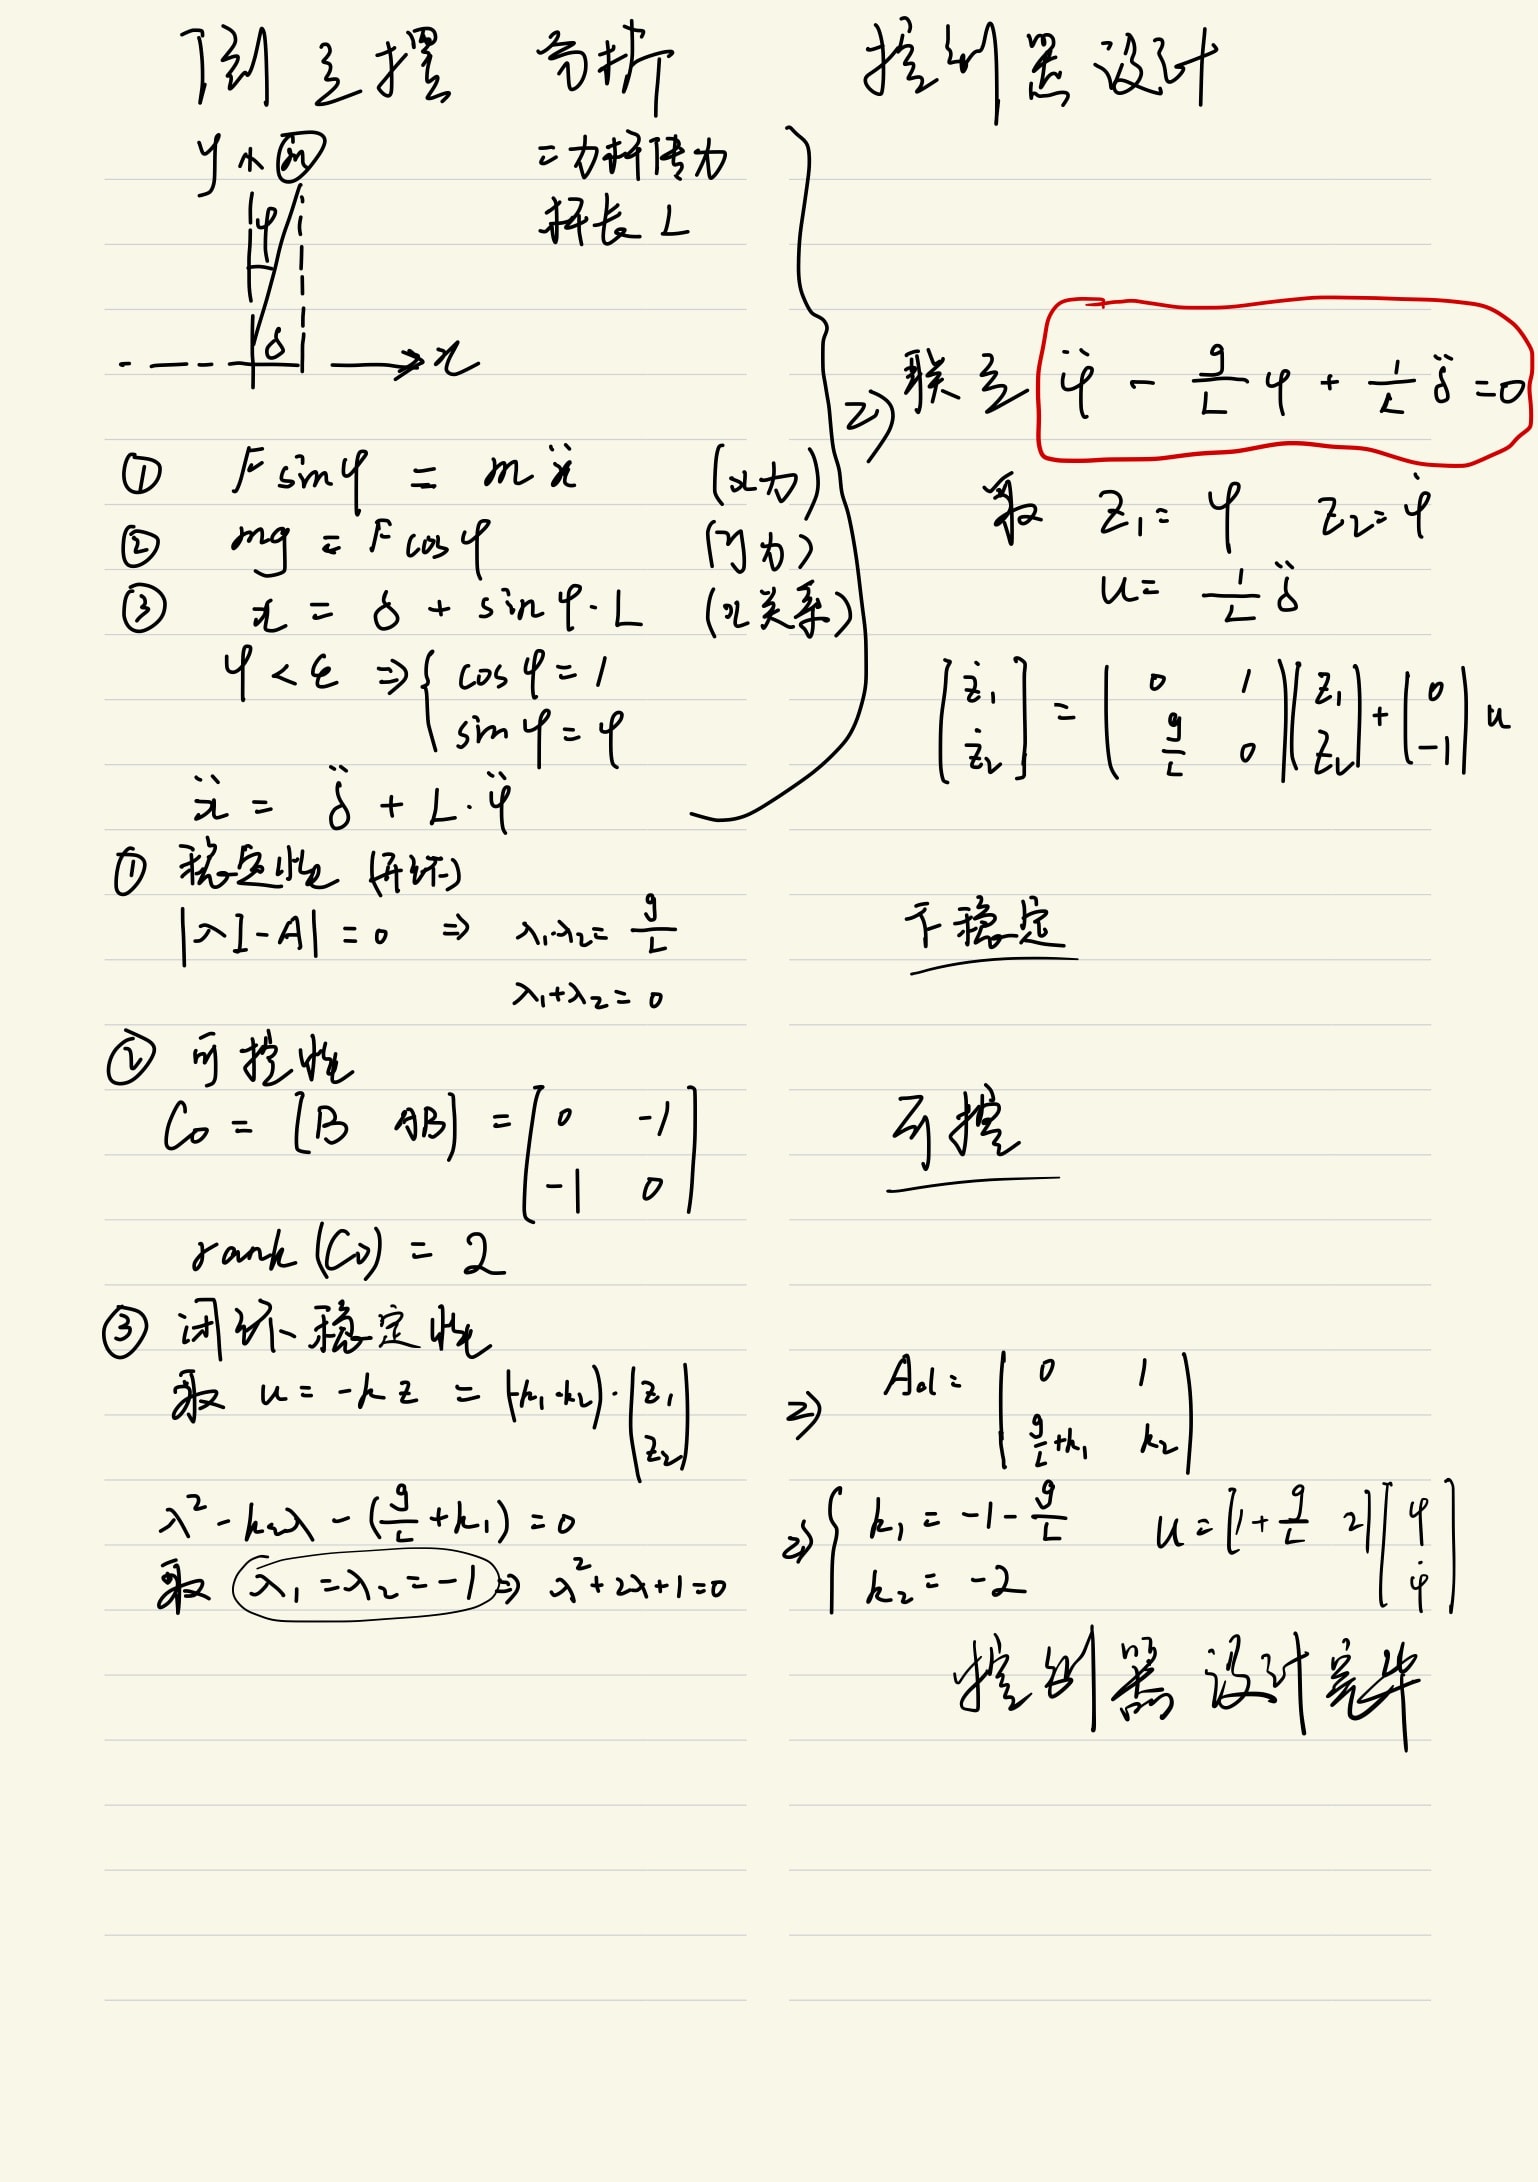 倒立摆 分析 控制器设计
y m
φ
δ
x
二力杆传力
杆长 L
① F sinφ = m ẍ (x力)
② mg = F cosφ (y力)
③ x = δ + sinφ·L (x关系)
φ < ε ⇒ { cosφ = 1
sinφ = φ
ẍ = δ̈ + L·φ̈
⇒ 联立 φ̈ - g/L φ + 1/L δ̈ = 0
取 z₁ = φ z₂ = φ̇
u = 1/L δ̈
[ż₁; ż₂] = [0 1; g/L 0] [z₁; z₂] + [0; -1] u
① 稳定性 (开环)
|λI-A| = 0 ⇒ λ₁·λ₂ = g/L
λ₁+λ₂ = 0
不稳定
② 可控性
Co = [B AB] = [0 -1; -1 0]
rank (Co) = 2
可控
③ 闭环稳定性
取 u = -k z = (-k₁ -k₂)·[z₁; z₂] ⇒ Acl = [0 1; g/L+k₁ k₂]
λ² - k₂λ - (g/L + k₁) = 0
取 λ₁ = λ₂ = -1 ⇒ λ²+2λ+1=0
⇒ { k₁ = -1 - g/L
k₂ = -2
u = [1+g/L 2] [φ; φ̇]
控制器设计完毕